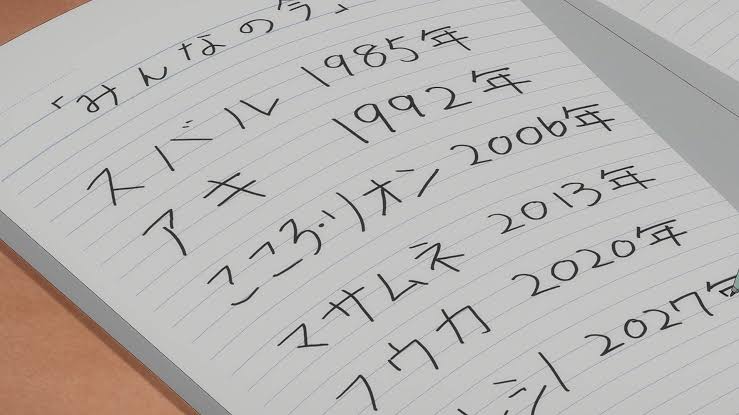 「みんなの今」
スバル 1985年
アキ 1992年
こころ・リオン 2006年
マサムネ 2013年
フウカ 2020年
2027年